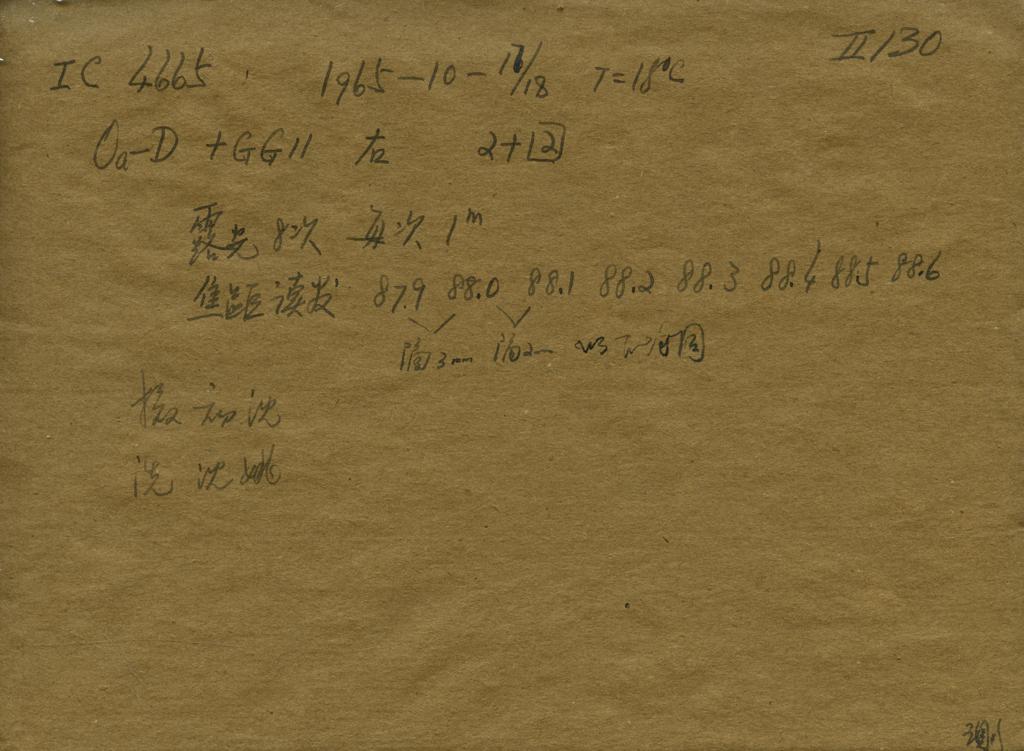 II/130
IC 4665 1965-10-17/18 T=18°C
Oa-D +GG11 右 2+2
露光 8次 每次 1m
焦距读数 87.9 88.0 88.1 88.2 88.3 88.4 88.5 88.6
隔3mm 隔2m 以下为同
沈
洗 沈 姚